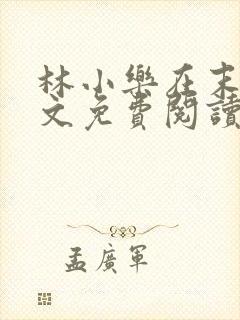 林小樂在末
文免費閱讀
孟廣軍